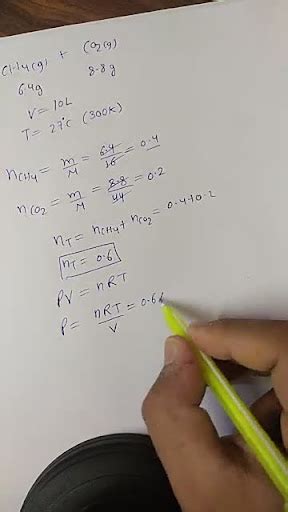 CH4(g) + CO2(g)
6.4g 8.8g
V = 10L
T = 27°C (300K)
nCH4 = m/M = 6.4/16 = 0.4
nCO2 = m/M = 8.8/44 = 0.2
nT = nCH4 + nCO2 = 0.4+0.2
nT = 0.6
PV = nRT
P = nRT/V = 0.6